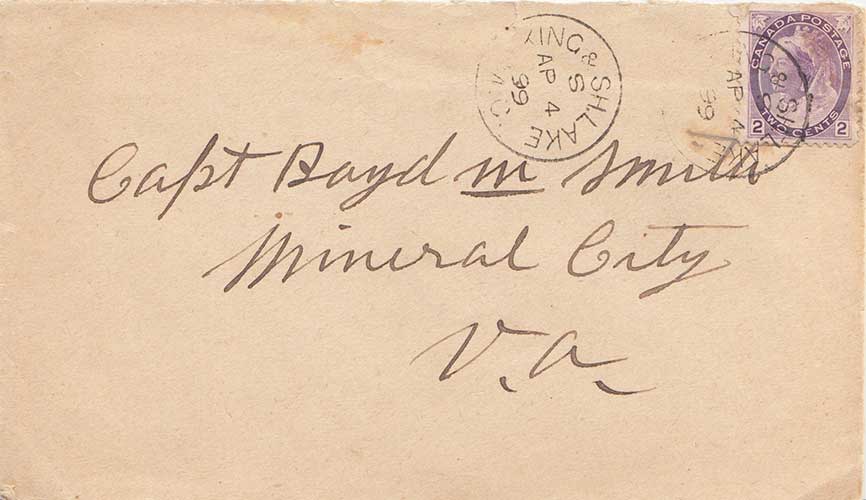 CANADA POSTAGE
2 TWO CENTS 2
KING & SH.LAKE
S
AP 4
99
& SH.L
AP 4
99
Capt Boyd M Smith
Mineral City
V.A.